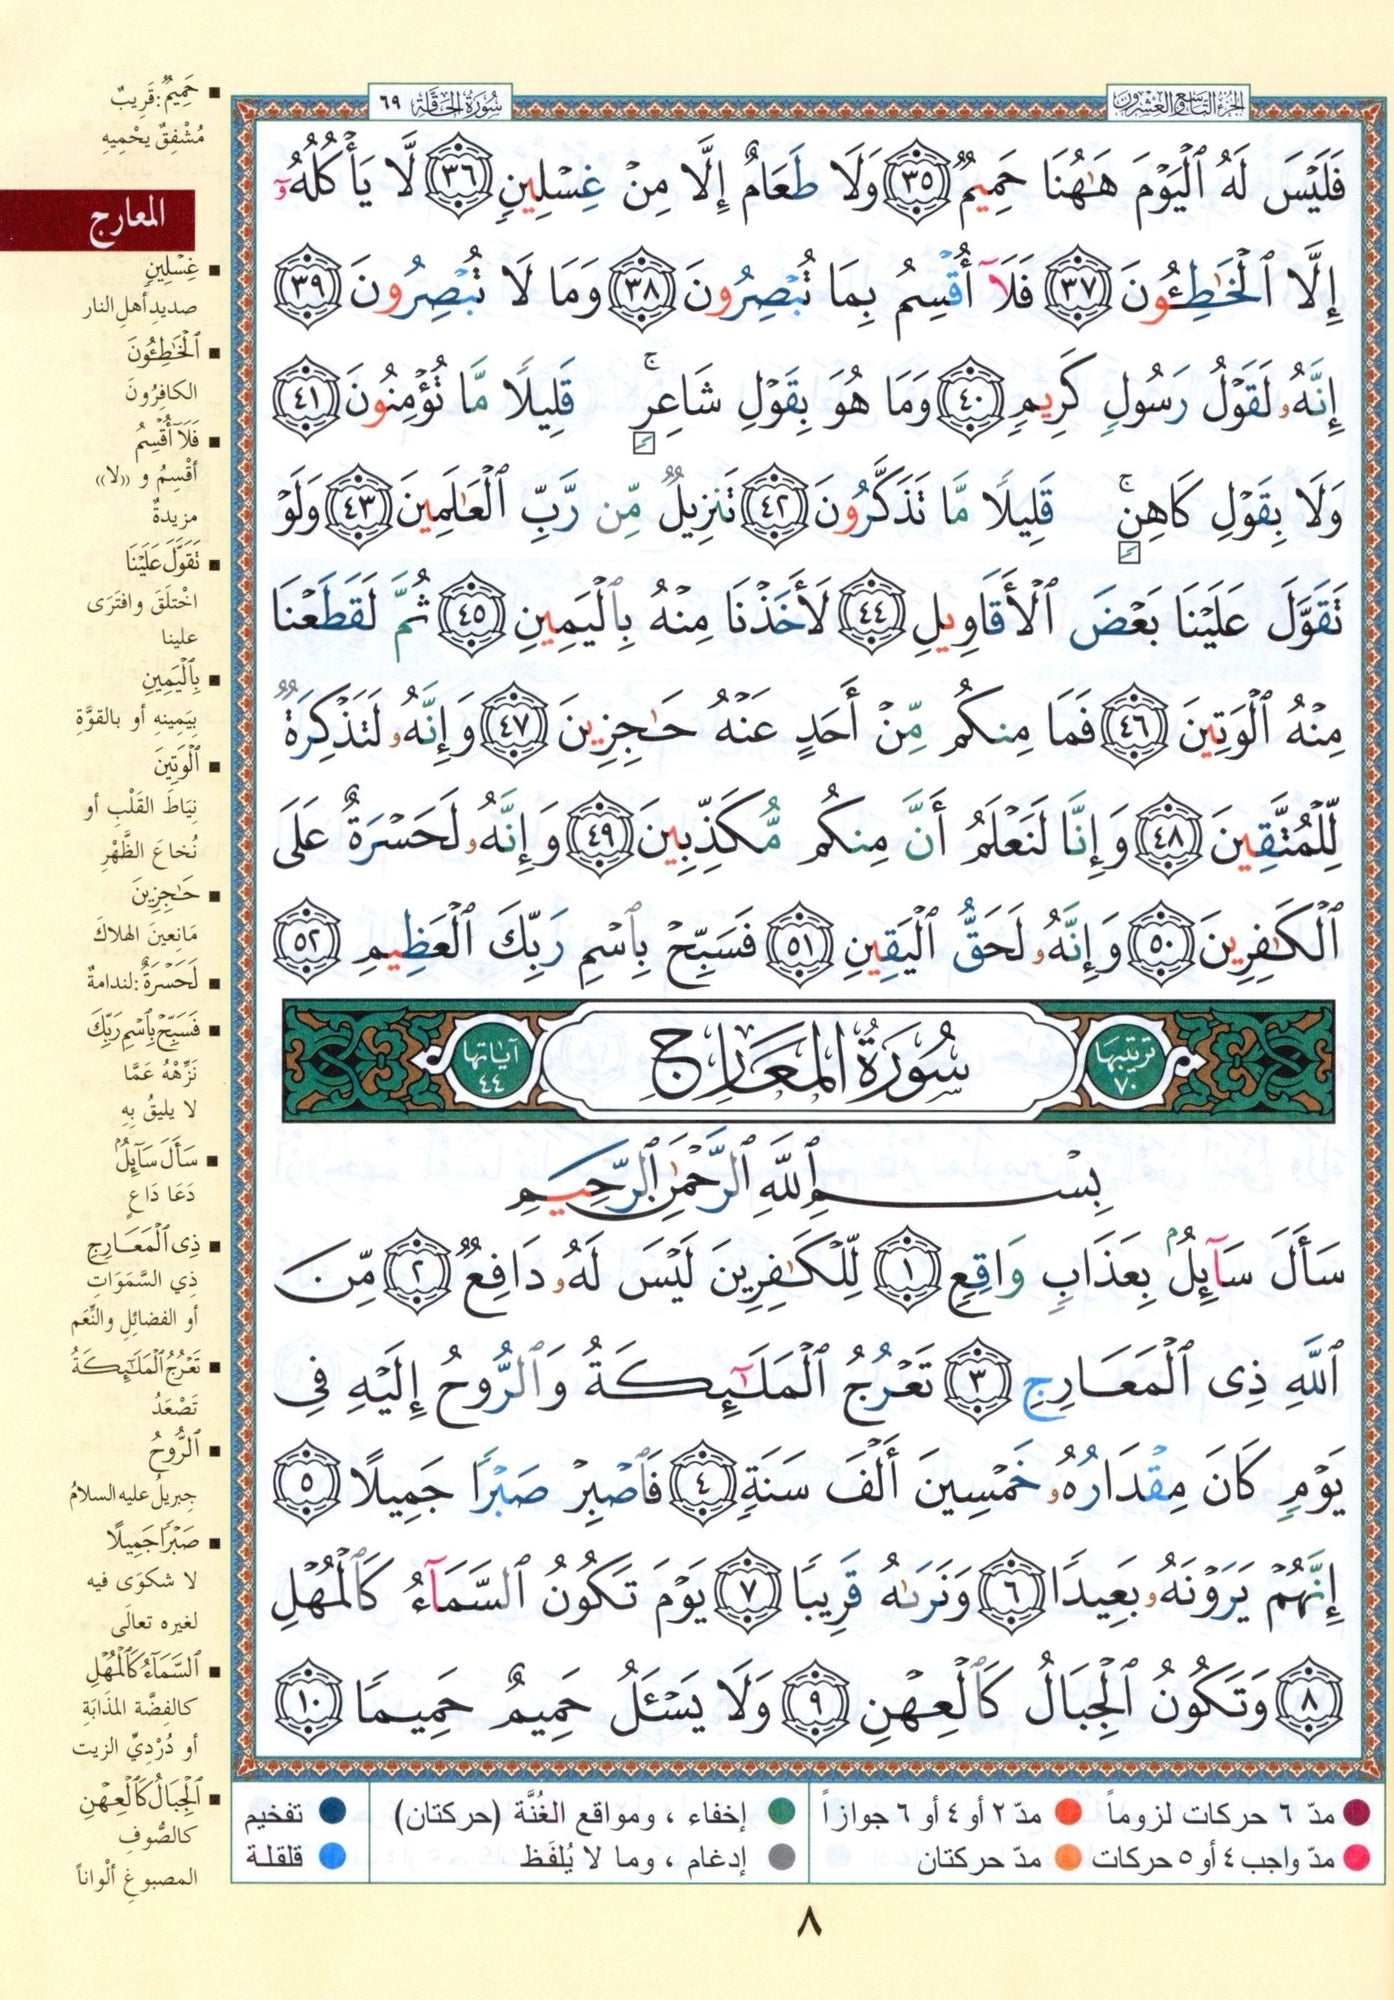 الجزء التاسع والعشرون
سورة الحاقة ٦٩
فَلَيْسَ لَهُ ٱلْيَوْمَ هَٰهُنَا حَمِيمٌ ٣٥ وَلَا طَعَامٌ إِلَّا مِنْ غِسْلِينٍ ٣٦ لَّا يَأْكُلُهُۥٓ
إِلَّا ٱلْخَٰطِـُٔونَ ٣٧ فَلَآ أُقْسِمُ بِمَا تُبْصِرُونَ ٣٨ وَمَا لَا تُبْصِرُونَ ٣٩
إِنَّهُۥ لَقَوْلُ رَسُولٍ كَرِيمٍ ٤٠ وَمَا هُوَ بِقَوْلِ شَاعِرٍ ۚ قَلِيلًا مَّا تُؤْمِنُونَ ٤١
وَلَا بِقَوْلِ كَاهِنٍ ۚ قَلِيلًا مَّا تَذَكَّرُونَ ٤٢ تَنزِيلٌ مِّن رَّبِّ ٱلْعَٰلَمِينَ ٤٣ وَلَوْ
تَقَوَّلَ عَلَيْنَا بَعْضَ ٱلْأَقَاوِيلِ ٤٤ لَأَخَذْنَا مِنْهُ بِٱلْيَمِينِ ٤٥ ثُمَّ لَقَطَعْنَا
مِنْهُ ٱلْوَتِينَ ٤٦ فَمَا مِنكُم مِّنْ أَحَدٍ عَنْهُ حَٰجِزِينَ ٤٧ وَإِنَّهُۥ لَتَذْكِرَةٌ
لِّلْمُتَّقِينَ ٤٨ وَإِنَّا لَنَعْلَمُ أَنَّ مِنكُم مُّكَذِّبِينَ ٤٩ وَإِنَّهُۥ لَحَسْرَةٌ عَلَى
ٱلْكَٰفِرِينَ ٥٠ وَإِنَّهُۥ لَحَقُّ ٱلْيَقِينِ ٥١ فَسَبِّحْ بِٱسْمِ رَبِّكَ ٱلْعَظِيمِ ٥٢
ترتيبها ٧٠ سُورَةُ المَعَارِج آياتها ٤٤
بِسْمِ ٱللَّهِ ٱلرَّحْمَٰنِ ٱلرَّحِيمِ
سَأَلَ سَآئِلٌۢ بِعَذَابٍ وَاقِعٍ ١ لِّلْكَٰفِرِينَ لَيْسَ لَهُۥ دَافِعٌ ٢ مِّنَ
ٱللَّهِ ذِى ٱلْمَعَارِجِ ٣ تَعْرُجُ ٱلْمَلَٰٓئِكَةُ وَٱلرُّوحُ إِلَيْهِ فِى
يَوْمٍ كَانَ مِقْدَارُهُۥ خَمْسِينَ أَلْفَ سَنَةٍ ٤ فَٱصْبِرْ صَبْرًا جَمِيلًا ٥
إِنَّهُمْ يَرَوْنَهُۥ بَعِيدًا ٦ وَنَرَىٰهُ قَرِيبًا ٧ يَوْمَ تَكُونُ ٱلسَّمَآءُ كَٱلْمُهْلِ
٨ وَتَكُونُ ٱلْجِبَالُ كَٱلْعِهْنِ ٩ وَلَا يَسْـَٔلُ حَمِيمٌ حَمِيمًا ١٠
حَمِيمٌ: قَرِيبٌ
مُشْفِقٌ يحْمِيهِ
المعارج
غِسْلِينٍ
صديدِ أهلِ النار
ٱلْخَٰطِـُٔونَ
الكافِرُونَ
فَلَآ أُقْسِمُ
أقْسِمُ و «لا»
مزيدةٌ
تَقَوَّلَ عَلَيْنَا
اخْتلَقَ وافتَرَى
علينا
بِٱلْيَمِينِ
بِيَمِينِهِ أو بالقوَّةِ
ٱلْوَتِينَ
نِيَاطَ القَلْبِ أو
نُخاعَ الظَّهْرِ
حَٰجِزِينَ
مَانِعينَ الهلاكَ
لَحَسْرَةٌ: لندامةٌ
فَسَبِّحْ بِٱسْمِ رَبِّكَ
نَزِّهْهُ عَمَّا
لا يليقُ بِهِ
سَأَلَ سَآئِلٌۢ
دَعَا دَاعٍ
ذِى ٱلْمَعَارِجِ
ذِي السَّمَوَاتِ
أو الفضائلِ والنِّعَم
تَعْرُجُ ٱلْمَلَٰٓئِكَةُ
تَصْعَدُ
ٱلرُّوحُ
جبريلُ عليه السلامُ
صَبْرًا جَمِيلًا
لا شكوَى فيه
لغيره تعالَى
ٱلسَّمَآءُ كَٱلْمُهْلِ
كالفِضَّة المذَابَةِ
أو دُرْدِيِّ الزيت
ٱلْجِبَالُ كَٱلْعِهْنِ
كالصُّوفِ
المصبوغِ ألْواناً
مدّ ٦ حركات لزوماً مدّ ٢ أو ٤ أو ٦ جوازاً إخفاء ، ومواقع الغُنَّة (حركتان) تفخيم
مدّ واجب ٤ أو ٥ حركات مدّ حركتان إدغام ، وما لا يُلفَظ قلقلة
٨